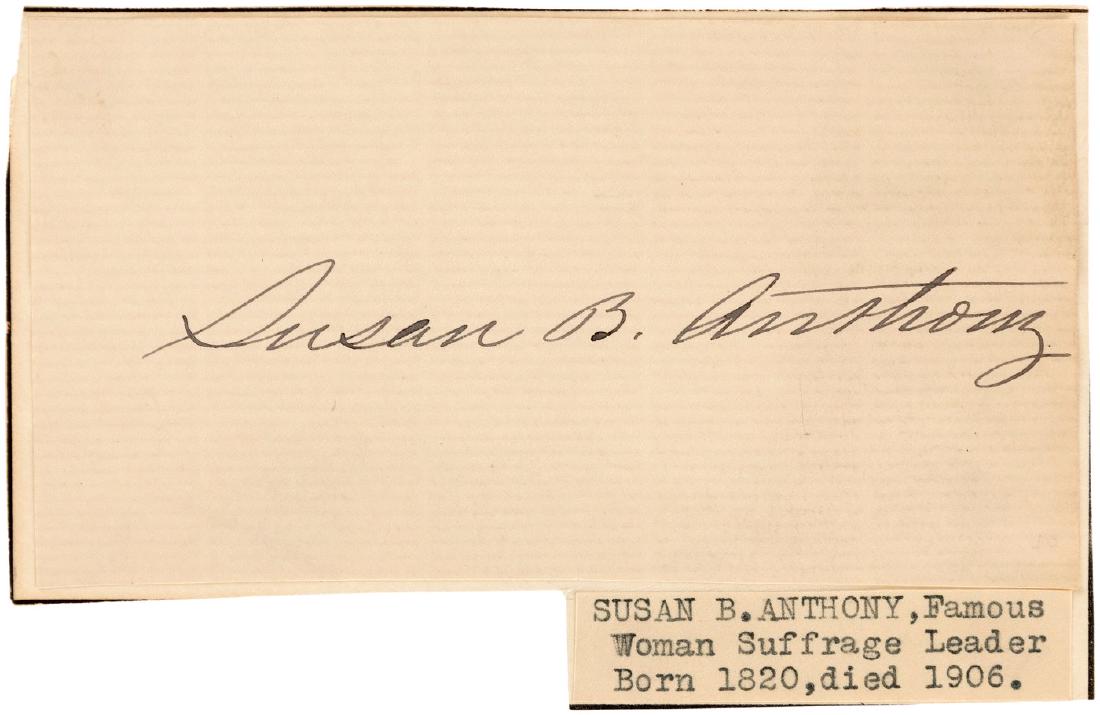 Susan B. Anthony
SUSAN B.ANTHONY,Famous
Woman Suffrage Leader
Born 1820,died 1906.